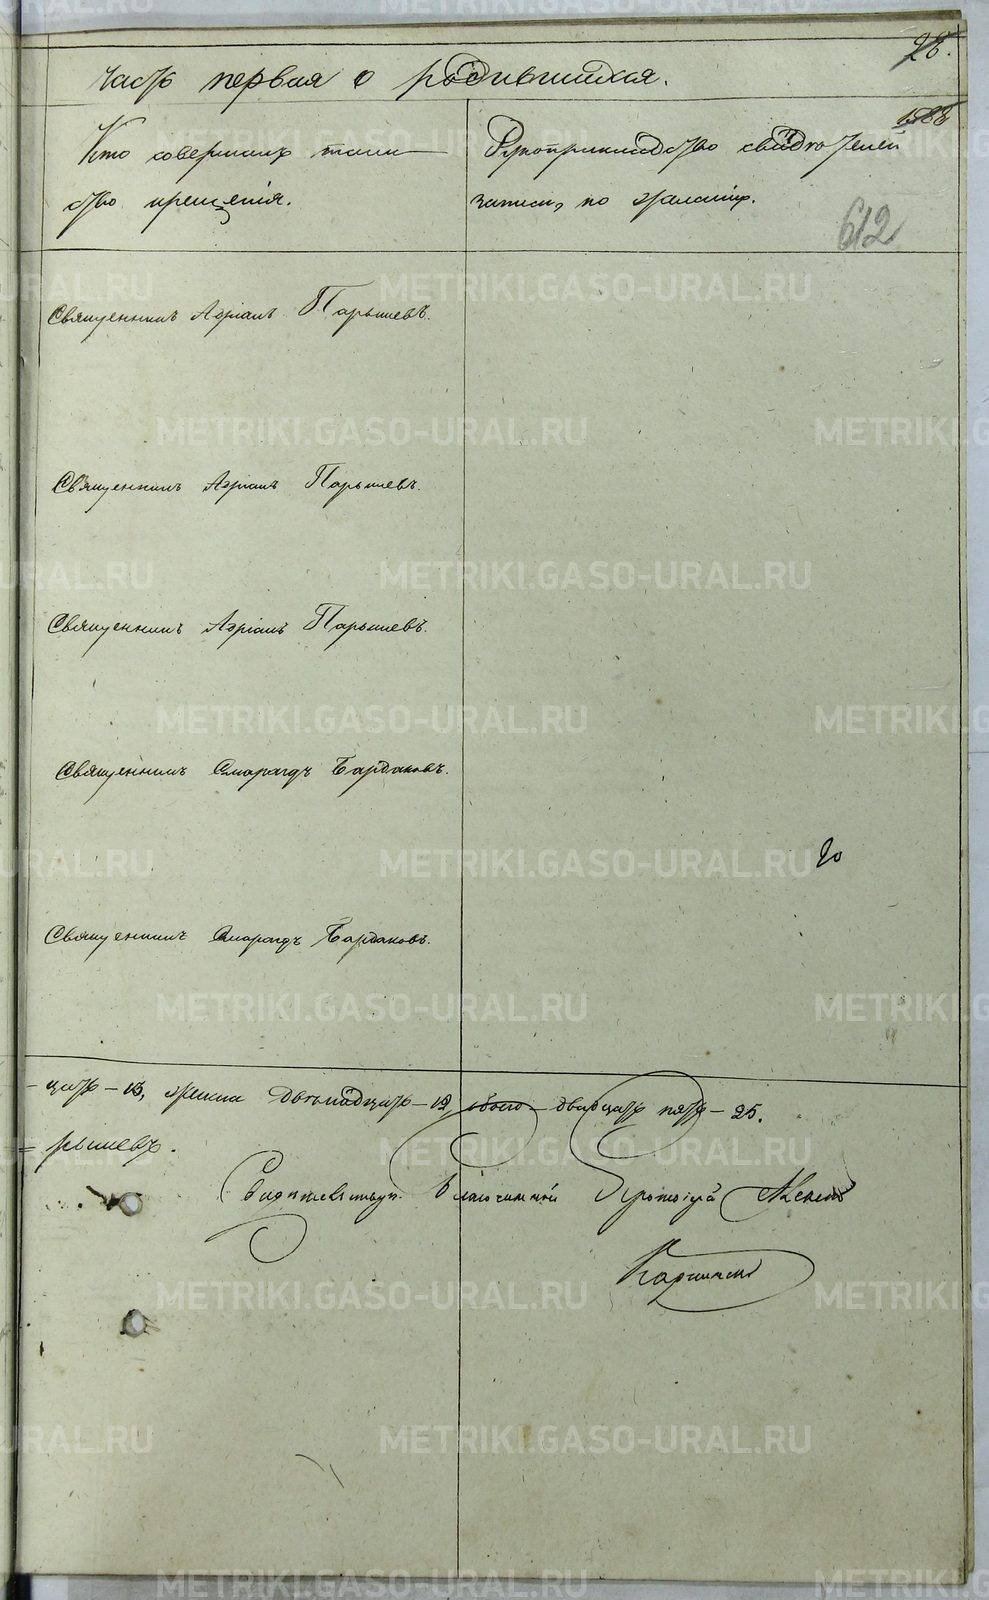 28.
часть первая о родившихся.
1588
Кто совершалъ таин-
Рукоприкладство свидѣтелей
ство крещенія.
записи, по желанію.
612
Священникъ Адріанъ Парышевъ.
Священникъ Адріанъ Парышевъ.
Священникъ Адріанъ Парышевъ.
Священникъ Смарагдъ Бардаковъ.
20
Священникъ Смарагдъ Бардаковъ.
-цать - 13, женска двѣнадцать - 12, обоего - двадцать пять - 25.
= рышевъ.
Благочинный Протоіерей
METRIKI.GASO-URAL.RU